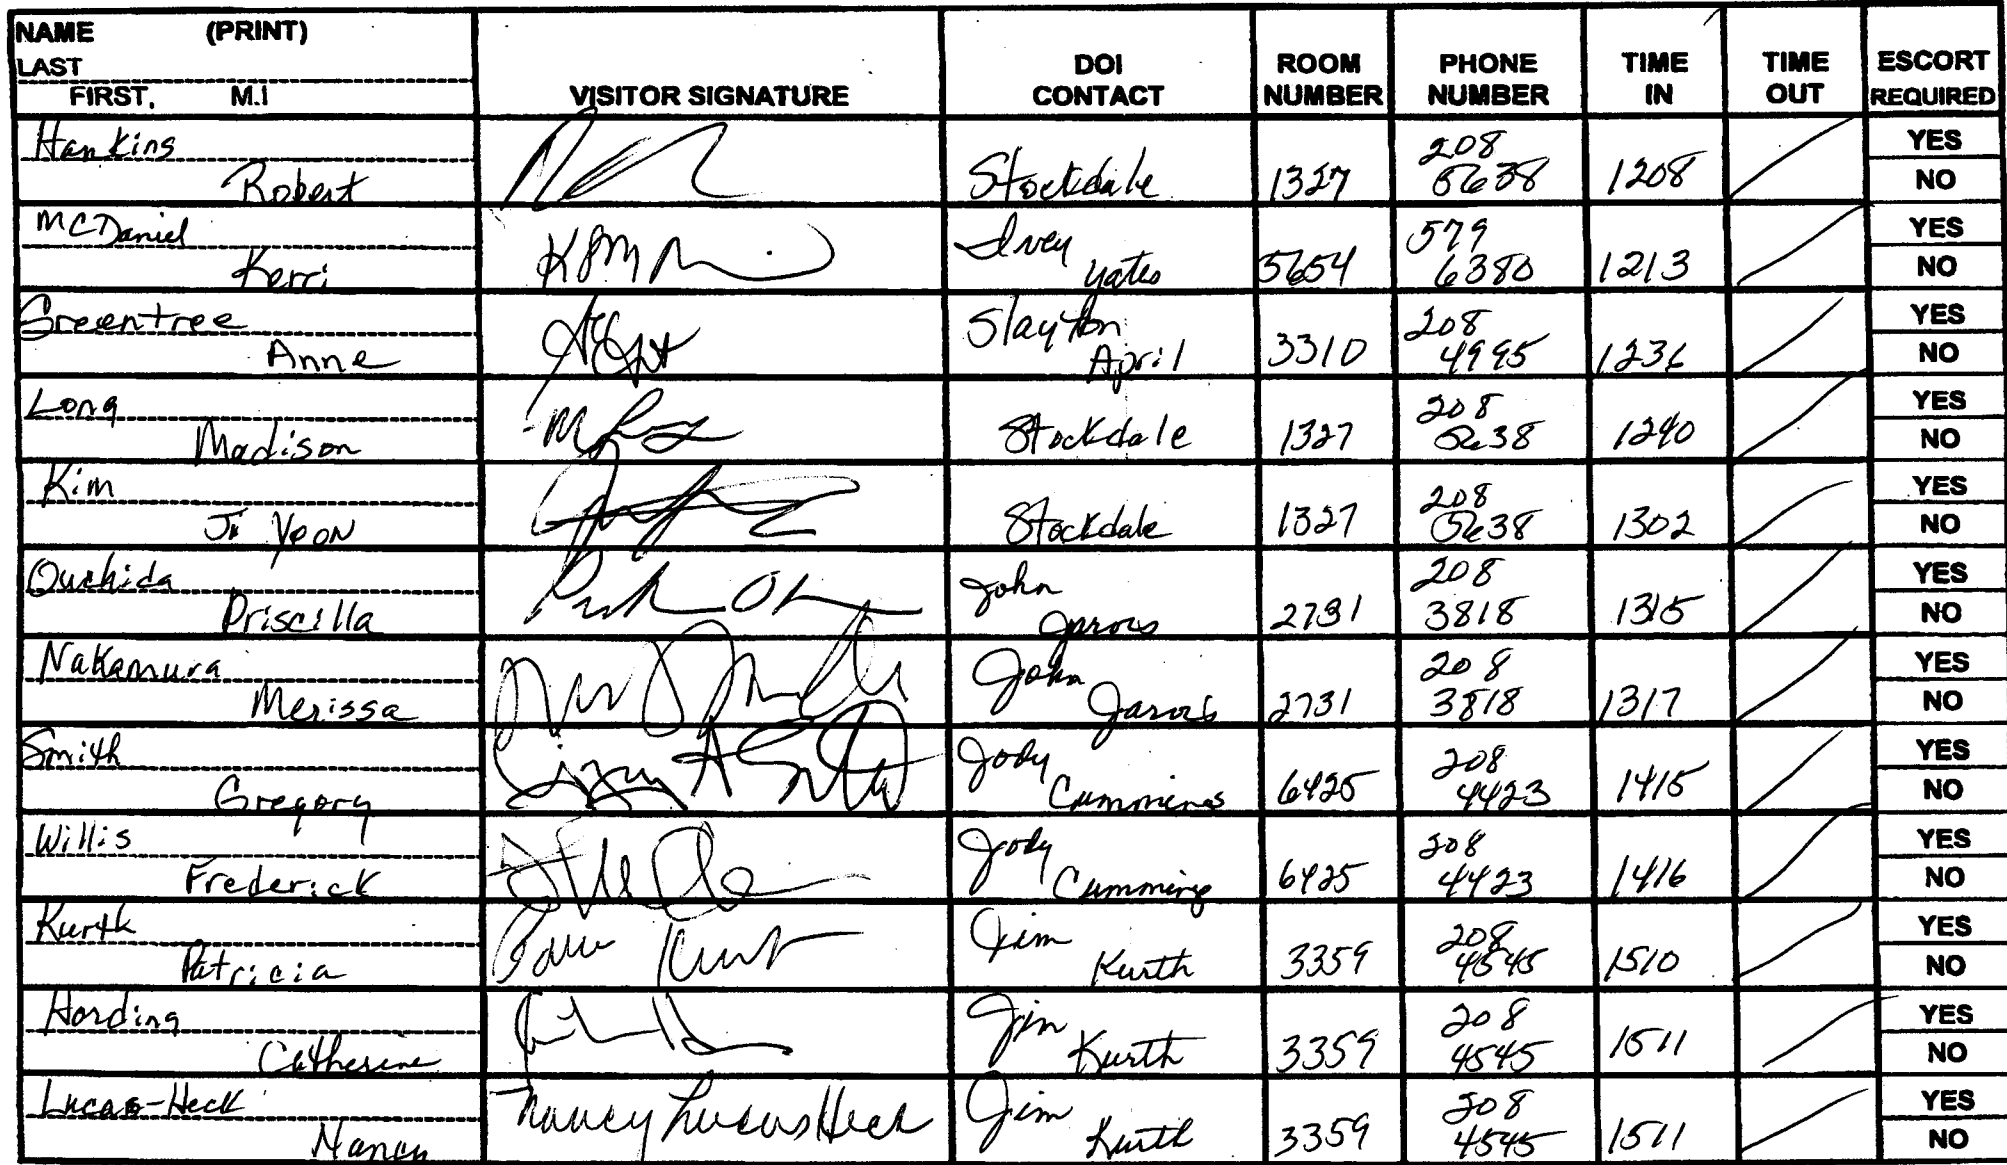 NAME (PRINT)
LAST
FIRST, M.I
VISITOR SIGNATURE
DOI CONTACT
ROOM NUMBER
PHONE NUMBER
TIME IN
TIME OUT
ESCORT REQUIRED
Hankins
Robert
Stockdale 1327 208 5638 1208 YES NO
McDaniel
Kerri
Ivey Yates 5654 579 6380 1213 YES NO
Greentree
Anne
Slayton April 3310 208 4995 1236 YES NO
Long
Madison
Stockdale 1327 208 5638 1240 YES NO
Kim
Ji Yeon
Stockdale 1327 208 5638 1302 YES NO
Ouchida
Priscilla
John Jarvis 2731 208 3818 1315 YES NO
Nakamura
Merissa
John Jarvis 2731 208 3818 1317 YES NO
Smith
Gregory
Jody Cummings 6425 208 4423 1415 YES NO
Willis
Frederick
Jody Cummings 6425 208 4423 1416 YES NO
Kurth
Patricia
Jim Kurth 3359 208 4545 1510 YES NO
Harding
Catherine
Jim Kurth 3359 208 4545 1511 YES NO
Lucas-Heck
Nancy
Nancy Lucas Heck
Jim Kurth 3359 208 4545 1511 YES NO